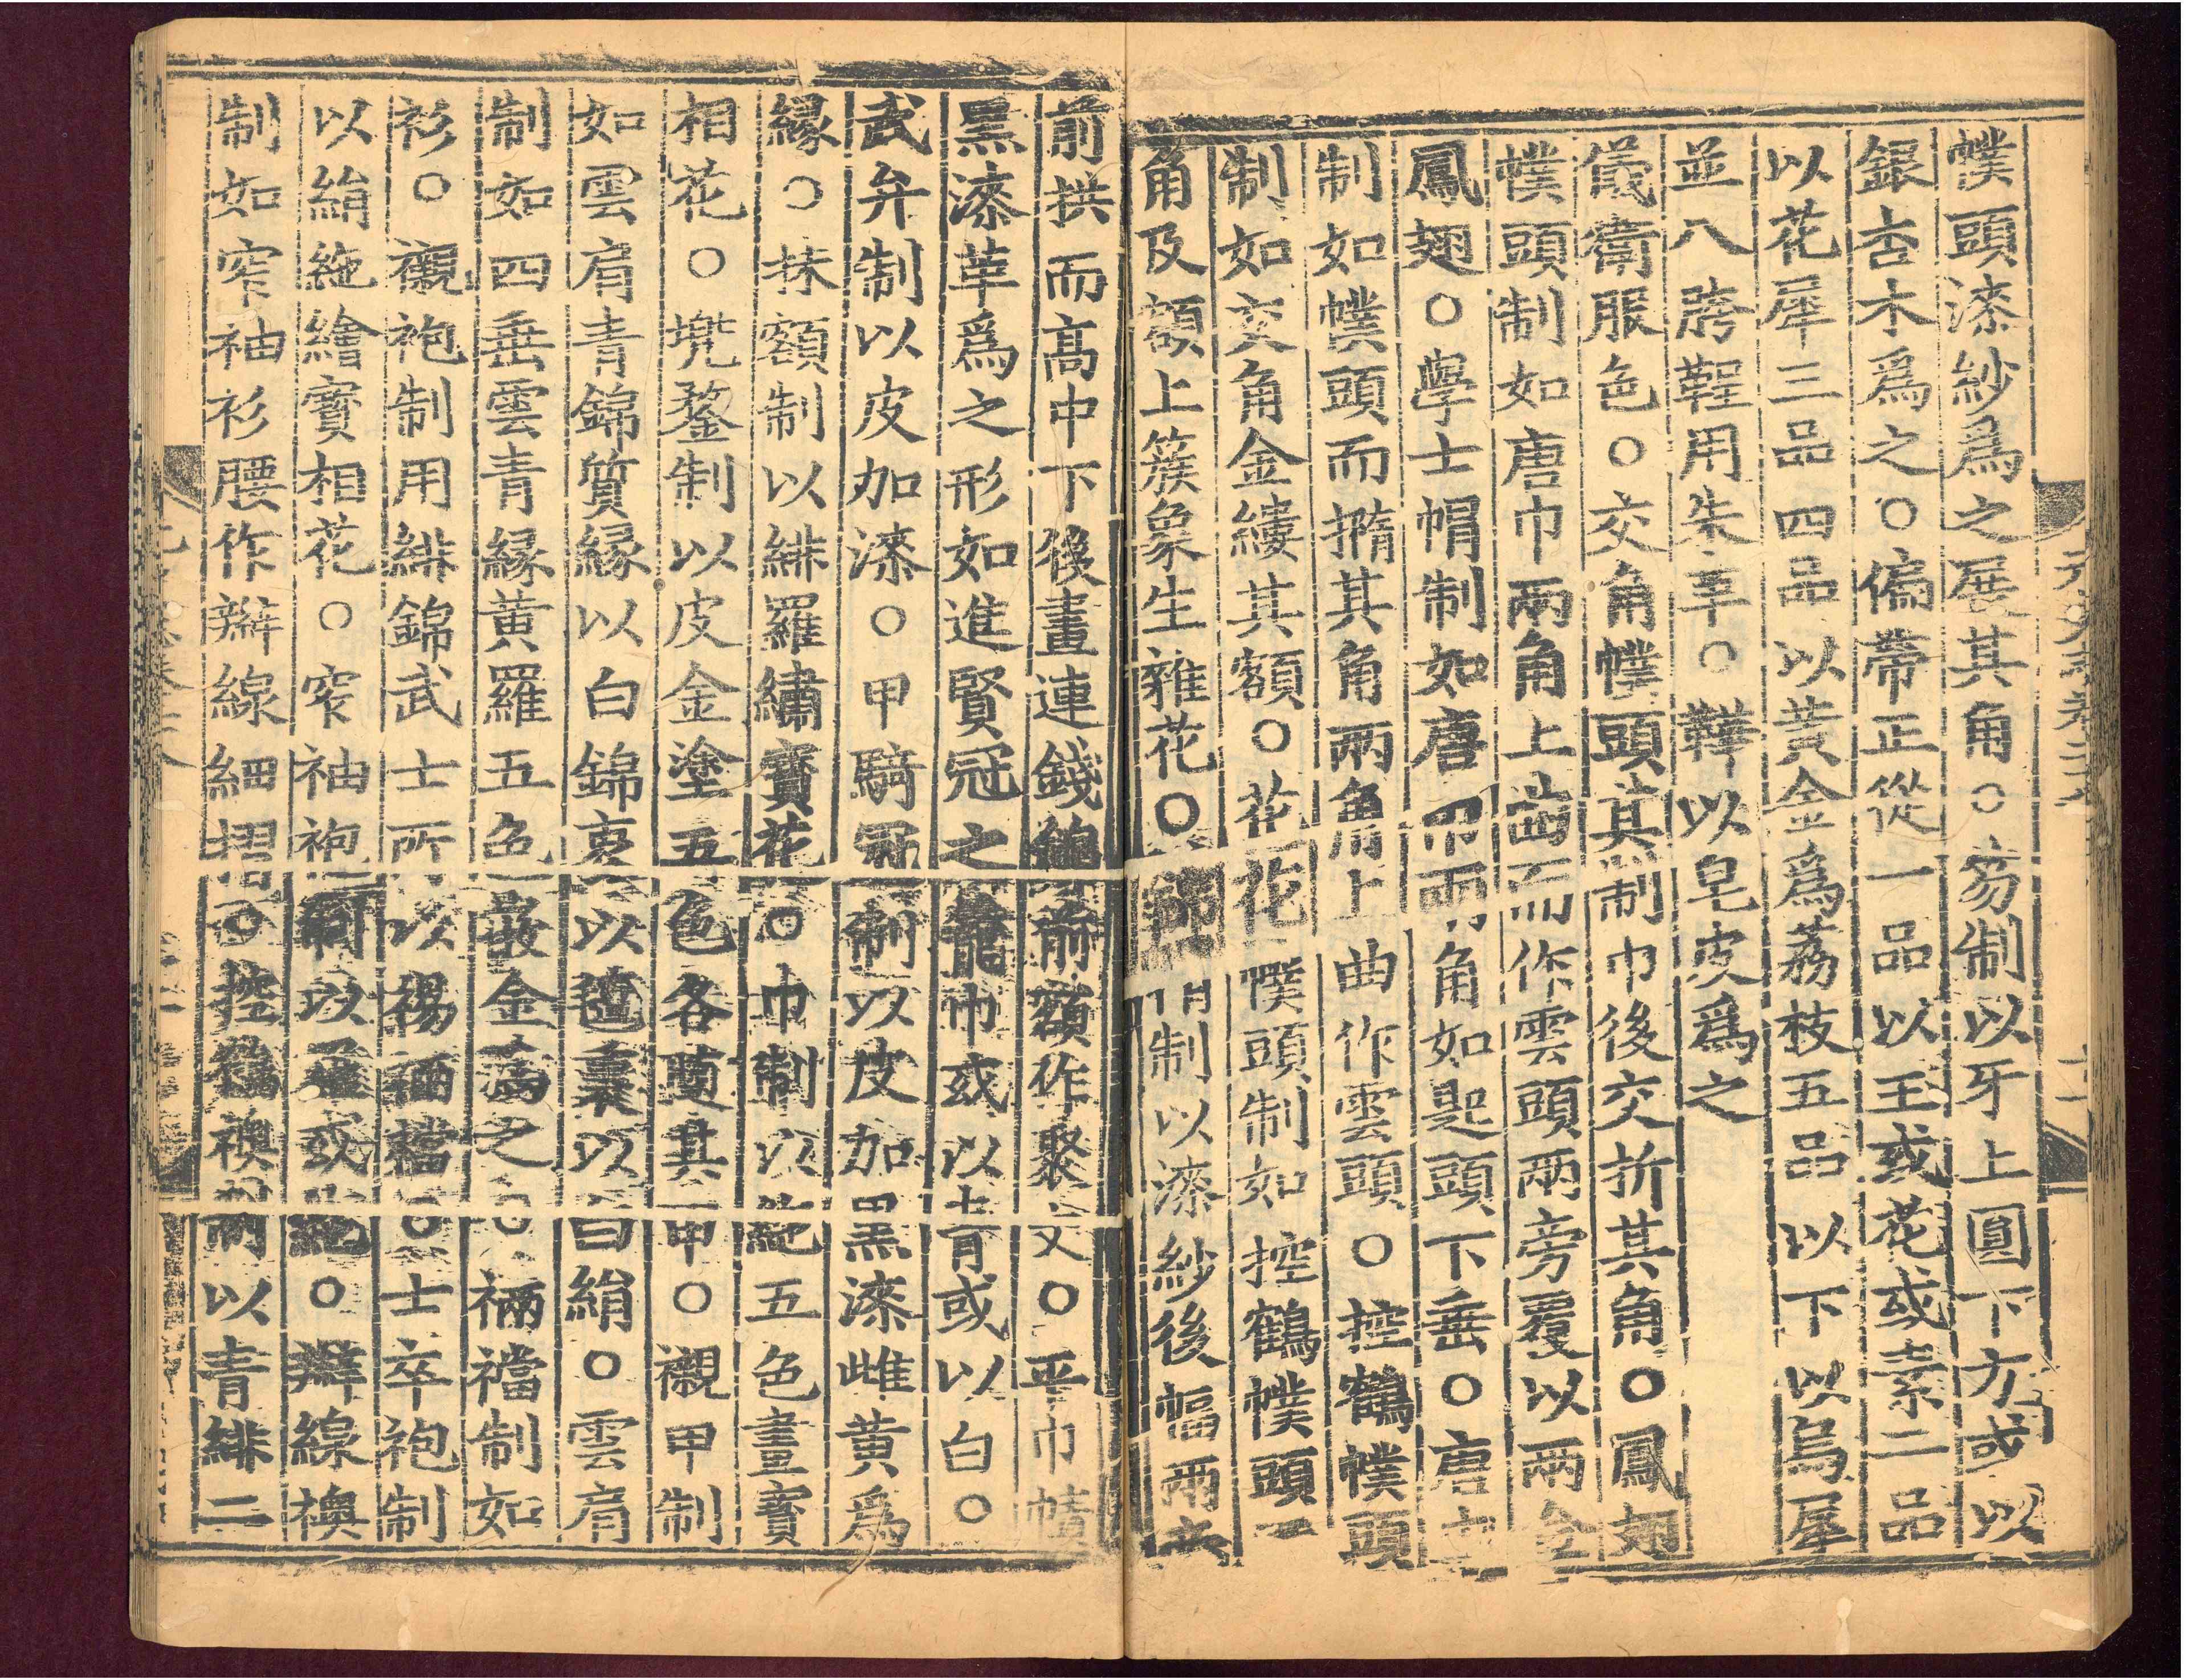 幞頭漆紗爲之展其角○笏制以牙上圓下方或以
銀杏木爲之○偏帶正從一品以玉或花或素二品
以花犀三品四品以黃金爲荔枝五品以下以烏犀
並八胯鞓用朱革○鞾以皂皮爲之
儀衛服色○交角幞頭其制巾後交折其角○鳳翅
幞頭制如唐巾兩角上曲而作雲頭兩旁覆以兩金
鳳翅○學士帽制如唐巾兩角如匙頭下垂○唐巾
制如幞頭而撱其角兩角上曲作雲頭○控鶴幞頭
制如交角金縷其額○花角幞頭制如控鶴幞頭兩
角及額上簇象生雜花○錦帽制以漆紗後幅兩旁
前拱而高中下後畫連錢錦前額作聚文○平巾幘
黑漆革爲之形如進賢冠之籠巾或以青或以白○
武弁制以皮加漆○甲騎冠制以皮加黑漆雌黃爲
緣○抹額制以緋羅繡寶花○巾制以絁五色畫寶
相花○兠鍪制以皮金塗五色各隨其甲○襯甲制
如雲肩青錦質緣以白錦裏以氊裏以白絹○雲肩
制如四垂雲青緣黃羅五色嵌金爲之○裲襠制如
衫○襯袍制用緋錦武士所以裼裲襠○士卒袍制
以絹絁繪寶相花○窄袖袍制以羅或絁○辮線襖
制如窄袖衫腰作辮線細摺○控鶴襖制以青緋二